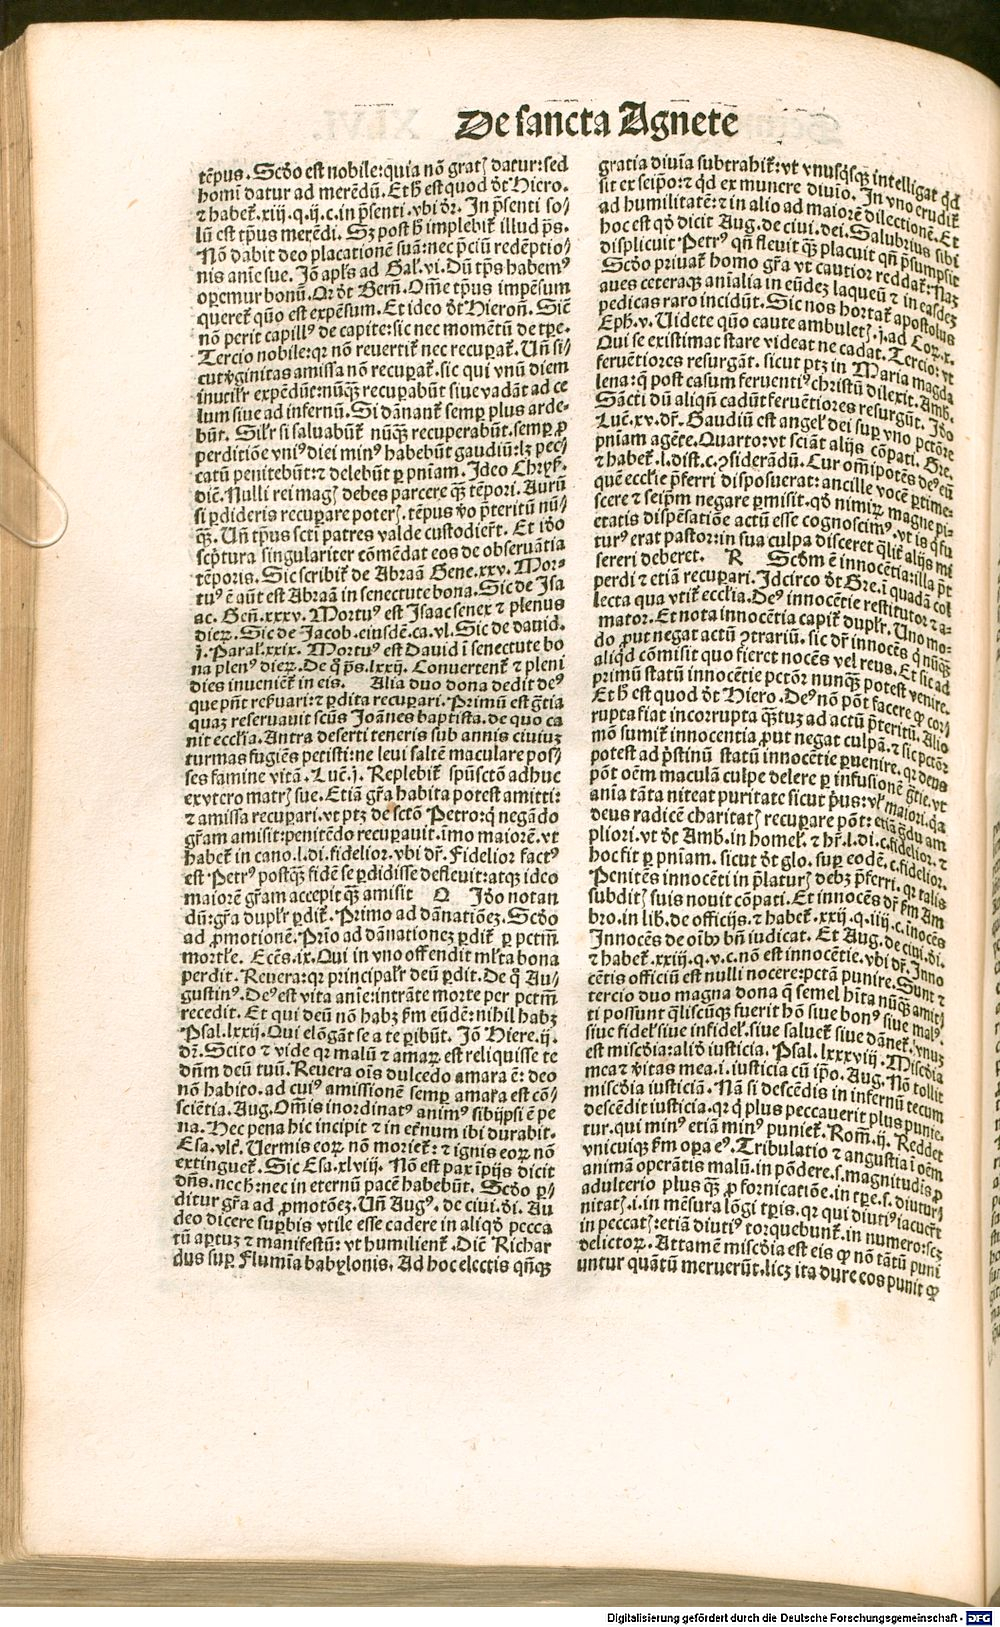 De sancta Agnete
tēpus. Scđo est nobile: quia nō gratꝭ datur: sed
homī datur ad merēdū. Et ħ est quod đt Hiero.
⁊ habet̄. xiii. q. ij. c. in p̄senti. vbi đr. In p̄senti so⸗
lū est tp̄us merēdi. Sꝫ post ħ implebit̄ illud ps̄.
Nō dabit deo placationē suā: nec p̄ciū redēptio⸗
nis anīe sue. Jō apl̄s ad Gal̄. vi. Dū tp̄s habemꝰ
operemur bonū. Or đt Bern̄. Om̄e tp̄us impēsum
queret̄ quō est expēsum. Et ideo đt Hieron̄. Sic̄
nō perit capillꝰ de capite: sic nec momētū de tp̄e.
Tercio nobile: qꝛ nō revertit̄ nec recuꝑat̄. Un̄ si⸗
cut v̄ginitas amissa nō recuꝑat̄. sic qui vnū diem
inutil̄r expēdūt: nūqꝫ recuꝑabūt siue vadāt ad ce
lum siue ad infernū. Si dānant̄ semꝑ plus arde⸗
būt. Sil̄r si saluabūt̄ nūqꝫ recuperabūt. semꝑ ꝑ
perditiōe vniꝰ diei minꝰ habebūt gaudiū: lꝫ pec⸗
catū penitebūt: ⁊ delebūt ꝑ pn̄iam. Jdeo Chryſ̄.
dic̄. Nulli rei magꝭ debes parcere qꝫ tēpori. Aurū
si ꝑdideris recuꝑare poterꝭ. tēpus v̄o p̄teritū nū⸗
qꝫ. Un̄ tp̄us scti patres valde custodier̄t. Et iđo
scp̄tura singulariter cōmēdat eos de obseruātia
tēporis. Sic scribit̄ de Abraā Gene. xxv. Mor⸗
tuꝰ ē aūt est Abraā in senectute bona. Sic de Isa
ac. Gen̄. xxxv. Mortuꝰ est Isaac senex ⁊ plenus
dieꝝ. Sic de Jacob. eiusdē. ca. vl. Sic de dauid.
j. Paral̄. xxix. Mortuꝰ est Dauid ī senectute bo
na plenꝰ dieꝝ. De q̄ ps̄. lxxij. Conuertent̄ ⁊ pleni
dies inuenient̄ in eis. Alia duo dona dedit deꝰ
que pn̄t reſ̄uari: ⁊ ꝑdita recuꝑari. Primū est gr̄tia
quaꝫ reseruauit scūs Joānes baptista. de quo ca
nit eccl̄ia. Antra deserti teneris sub annis ciuiuꝫ
turmas fugiēs petisti: ne leui saltē maculare pos⸗
ses famine vitā. Luc̄. j. Replebit̄ spūsctō adhuc
ex vtero matrꝭ sue. Etiā gr̄a habita potest amitti:
⁊ amissa recuꝑari. vt ptꝫ de sctō Petro: q̄ negādo
gr̄am amisit: penitēdo recuꝑauit. īmo maiorē. vt
habet̄ in cano. l. di. fidelior. vbi đr. Fidelior factꝰ
est Petrꝰ postqꝫ fidē se ꝑdidisse defleuit: atqꝫ ideo
maiorē gr̄am accepit qꝫ amisit Q Jđo notan
dū: gr̄a dupl̄r ꝑdit̄. Primo ad dānationeꝫ. Scđo
ad ꝓmotionē. Prīo ad dānationeꝫ ꝑdit̄ ꝑ pctm̄
mortl̄e. Ecēs. ix. Qui in vno offendit ml̄ta bona
perdit. Reuera: qꝛ principal̄r deū ꝑdit. De q̄ Au⸗
gustinꝰ. Deꝰ est vita anīe: intrāte morte per pctm̄
recedit. Et qui deū nō habꝫ ẜm eūdē: nihil habꝫ
Psal. lxxij. Qui elōgāt se a te ꝑibūt. Jō Hiere. ij.
dr̄. Scito ⁊ vide qꝛ malū ⁊ amaꝝ est reliquisse te
dn̄m deū tuū. Reuera oīs dulcedo amara ē: deo
nō habito. ad cuiꝰ amissionē semꝑ amara est cō⸗
sciētia. Aug. Om̄is inordinatꝰ animꝰ sibijpsi ē pe
na. Hec pena hic incipit ⁊ in et̄num ibi durabit.
Esa. vlt̄. Uermis eoꝝ nō moriet̄: ⁊ ignis eoꝝ nō
extinguet̄. Sic Esa. xlviij. Nō est pax īpijs dicit
dn̄s. nec ħ: nec in eternū pacē habebūt. Scđo ꝑ⸗
ditur gr̄a ad ꝓmotōeꝫ. Un̄ Augꝰ. de ciui. đi. Au
deo dicere suꝑbis vtile esse cadere in aliqđ pecca
tū aꝑtuꝫ ⁊ manifestū: vt humilient̄. Dic̄ Richar
dus suꝑ Flumīa babylonis. Ad hoc electis qn̄qꝫ
gratia diuīa subtrahit̄: vt vnusqͥsqꝫ intelligat qđ
sit ex seipō: ⁊ qđ ex munere diuīo. In vno erudit̄
ad humilitatē: ⁊ in alio ad maiorē dilectionē. Et
hoc est qđ dicit Aug. de ciui. dei. Salubrius sibi
displicuit Petrꝰ qn̄ fleuit qꝫ placuit qn̄ p̄sumpsit
Scđo priuat̄ homo gr̄a vt cautior reddat̄. Naꝫ
aues ceteraqꝫ aīalia in eūdeꝫ laqueū ⁊ in easdeꝫ
pedicas raro incidūt. Sic nos hortat̄ apostolus
Eph̄. v. Uidete quō caute ambuletꝭ. j. ad Coꝝ. x.
Qui se existimat stare videat ne cadat. Tercio: vt
feruētiores resurgāt. sicut ptꝫ in Maria magda
lena: q̄ post casum feruentiꝰ christū dilexit. Amb.
Sācti dū aliqn̄ cadūt feruētiores resurgūt. Jđo
Luc̄. xv. đr. Gaudiū est angel̄ dei suꝑ vno pctōre
pn̄iam agēte. Quarto: vt sciāt alijs cōpati. Gre.
⁊ habet̄. l. dist. c. ꝯsiderādū. Cur om̄ipotēs deꝰ eū
quē eccl̄ie p̄ferri disposuerat: ancille vocē ꝑtime⸗
scere ⁊ seipm̄ negare ꝑmisit. qđ nimiꝝ magne pi⸗
etatis dispēsatiōe actū esse cognoscimꝰ. vt is qͥ fu
turꝰ erat pastor: in sua culpa disceret ql̄it̄ alijs mi
sereri deberet. R Scđm ē innocētia: illa p̄t
perdi ⁊ etiā recuꝑari. Idcirco đt Gre. ī quadā col
lecta qua vtit̄ eccl̄ia. Deꝰ innocētie restitutor ⁊ a⸗
mator. Et nota innocētia capit̄ dupl̄r. Uno mo⸗
do ꝓut negat actū ꝯtrariū. sic đr innocēs q̄ nūqꝫ
aliqđ cōmisit quo fieret nocēs vel reus. Et sic ad
primū statū innocētie pctōr nunqꝫ potest venire.
Et ħ est quod đt Hiero. Deꝰ nō pōt facere q̄ cor⸗
rupta fiat incorrupta qꝫtuꝫ ad actū p̄teritū. Alio
mō sumit̄ innocentia ꝓut negat culpā. ⁊ sic pctōr
potest ad p̄stinū statū innocētie ꝑuenire. qꝛ deus
pōt oēm maculā culpe delere ꝑ infusionē gr̄tie. vt
anīa tāta niteat puritate sicut pͥus: vl̄ maiori. qa
deus radicē charitatꝭ recuꝑare pōt: etiā gͣdu am
pliori. vt đt Amb. in homel̄. ⁊ hr̄. l. di. c. fidelior. ⁊
hoc fit ꝑ pn̄iam. sicut đt glo. suꝑ eodē. c. fidelior.
Penitēs innocēti in p̄laturꝭ debꝫ p̄ferri. qꝛ talis
subditꝭ suis nouit cōpati. Et innocēs đr ẜm Am
bro. in lib. de officijs. ⁊ habet̄. xxij. q. iiij. c. inocēs
Innocēs de oībꝰ bn̄ iudicat. Et Aug. de ciui. đi.
⁊ habet̄. xxiij. q. v. c. nō est innocētie. vbi đr. Inno
cētis officiū est nulli nocere: pctā punire. Sunt ⁊
tercio duo magna dona q̄ semel hīta nūqꝫ amit⸗
ti possunt qͥliscūqꝫ fuerit hō siue bonꝰ siue malꝰ.
siue fidel̄ siue infidel̄. siue saluet̄ siue dānet̄. vnuꝫ
est miscđia: aliđ iusticia. Psal. lxxxviij. Miscđia
mea ⁊ v̄itas mea. i. iusticia cū ip̄o. Aug. Nō tollit
miscđia iusticiā. Nā si descēdis in infernū tecum
descēdit iusticia. qꝛ q̄ plus peccauerit plus punie.
tur. qui minꝰ etiā minꝰ puniet̄. Rom̄. ij. Reddet
vnicuiqꝫ ẜm oꝑa eꝰ. Tribulatio ⁊ angustia ī oēm
animā operātis malū. in pōdere. s. magnitudīs ꝓ
adulterio plus qꝫ ꝓ fornicatiōe. in tp̄e. s. diutur⸗
nitatꝭ. i. in mēsura lōgi tp̄is. qꝛ qui diutiꝰ iacuer̄t
in peccatꝭ: etiā diutiꝰ torquebunt̄. in numero: scꝫ
delictoꝝ. Attamē miscđia est eis qꝛ nō tātū puni
untur quātū meruerūt. licꝫ ita dure eos punit qꝛ
Digitalisierung gefördert durch die Deutsche Forschungsgemeinschaft - DFG